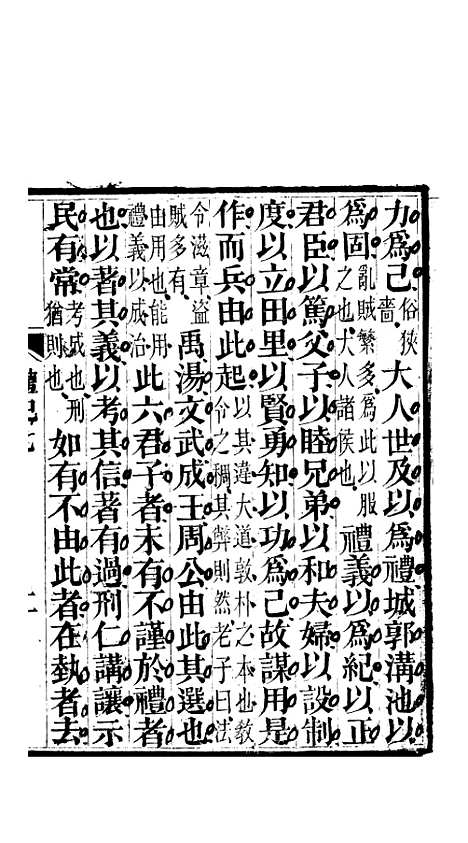 力爲己俗狹嗇大人世及以爲禮城郭溝池以
爲固亂賊繁多爲此以服之也大人諸侯也禮義以爲紀以正
君臣以篤父子以睦兄弟以和夫婦以設制
度以立田里以賢勇知以功爲己故謀用是
作而兵由此起以其違大道敦朴之本也敎令之稠其弊則然老子曰法
令滋章盜賊多有禹湯文武成王周公由此其選也
由用也能用禮義以成治此六君子者未有不謹於禮者
也以著其義以考其信著有過刑仁講讓示
民有常考成也刑猶則也如有不由此者在埶者去
禮記七
二